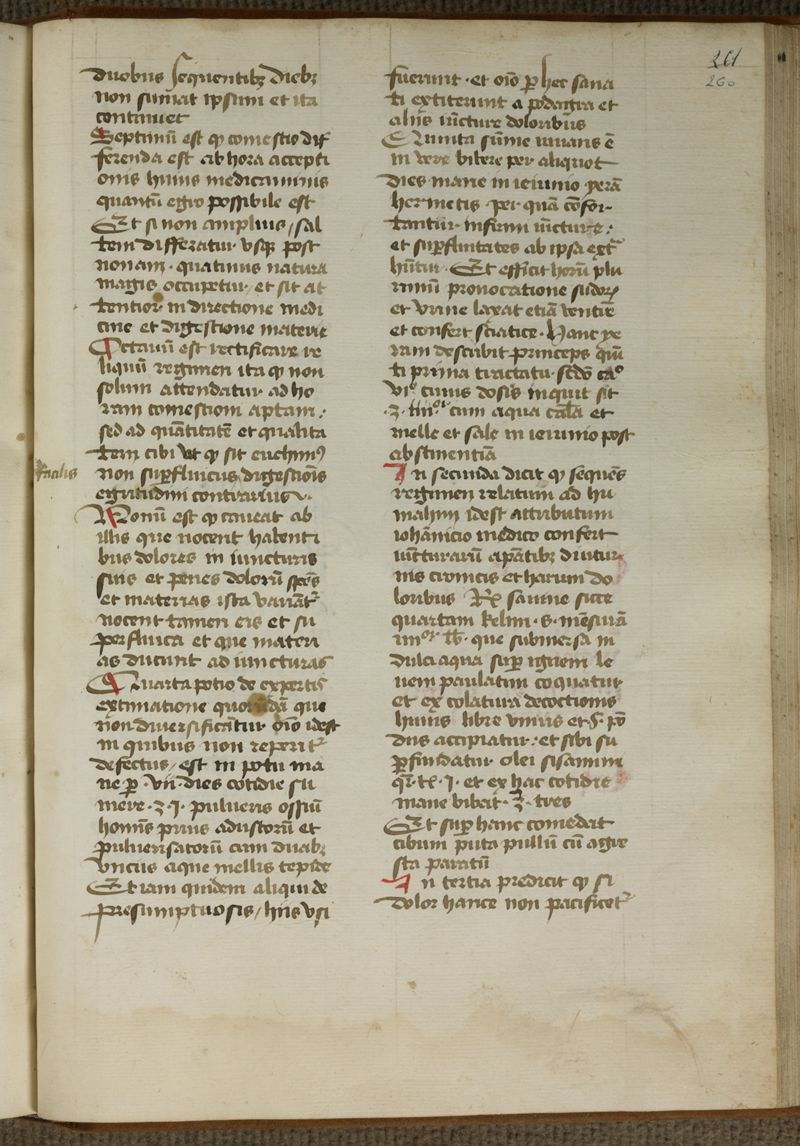 duobus sequentibꝫ diebꝫ
non sum̄at ipsum et ita
continuet
Septimū est ꝙ comestio dif
ferenda est ab hora accepti
onis huius medicaminis
quantū egro possibile est
Et si non amplius / sal
tem differatur vsqꝫ post
nonam · quatinus natura
magis occupetur · et sit at
tentior in directione medi
cine et digestione materie
Octauū est rectificare re
liquū regimen ita ꝙ non
solum attendatur ad ho
ram comestioni aptam :
sed ad quātitatē et qualita
tem cibi vt ꝙ sit euchimꝰ
non suꝑfluicus digestiōis
egritudini contrarius
Nonū est ꝙ caueat ab
illis que nocent habenti
bus dolores in iuncturis
suis et penes dolorū sp̄es
et materias ista variāt᷑
nocent tamen eis et su
perfluica et que materi
as ducunt ad iuncturas
Quarta potio de expertis
extimatione quorūdā que
non diuersificātur oīo idest
in quibus non reperit᷑
defectus / est in potu ma
ne ꝑ · vii · dies cotidie su
mere · ʒ · i · pulueris ossiū
homīs prius adustorū et
puluerisatorū cum duabꝫ
vncijs aque mellis tepide
Et iam quidem aliqui de
presumptuosis / hijs vsi
fuerunt · et oīo ꝑ hec sana
ti extiterunt a podagra et
alijs iūcture doloribus
Quinta sūme iuuans ē
in vere bibere per aliquot
dies mane in ieiunio yerā
hermetis · per quā cōfor-
tantur infirmi iūcture :
et suꝑfluitates ab ipsa ext᷑
hūtur · Et efficit horū plu
rimū prouocatione sudoꝝ
et vrine laxat etiā ventrē
et confert sciatice · Hanc ye
ram describit princeps quī
ti prima tractatu · scd̄o ca°
vi° cuius dosis inquit sit
· ʒ · iiiior cum aqua cal̄a et
melle et sale in ieiunio post
abstinentiā
In secunda dicit ꝙ sequēs
regimen relatum ad hu
mainū idest attributum
iohānicio medico confert
iūcturarū a passibꝫ diutur
nis cronicis et harum do
loribus ℞ saniue sicce
quartam kelini · s · mēsurā
iiiior l̄b · que submersa in
dulci aqua suꝑ ignem le
uem paulatim coquatur
et ex colatura decoctionis
huius libre vnius et s̄ pō
dus accipiatur : et sibi su
ꝑfundatur olei sisamini
qr̄ · t᷑ · i · et ex hac cotidie
mane bibat · ʒ · tres
Et suꝑ hanc comedat
cibum puta pullū cū agre
sta paratū
In tertia predicit ꝙ si
dolor hance non pacificet᷑
261
260